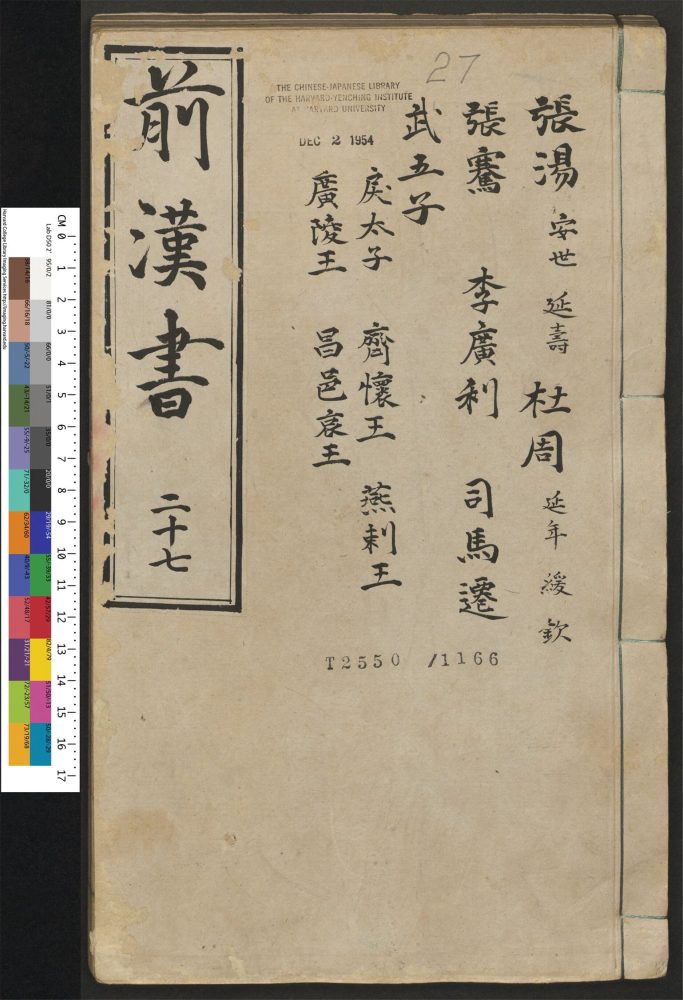 張湯 安世 延壽 杜周 延年 緩 欽
張騫 李廣利 司馬遷
武五子
戾太子 齊懷王 燕剌王
廣陵王 昌邑哀王
前漢書 二十七
27
THE CHINESE-JAPANESE LIBRARY
OF THE HARVARD-YENCHING INSTITUTE
AT HARVARD UNIVERSITY
DEC 2 1954
T2550 /1166
CM 0 1 2 3 4 5 6 7 8 9 10 11 12 13 14 15 16 17